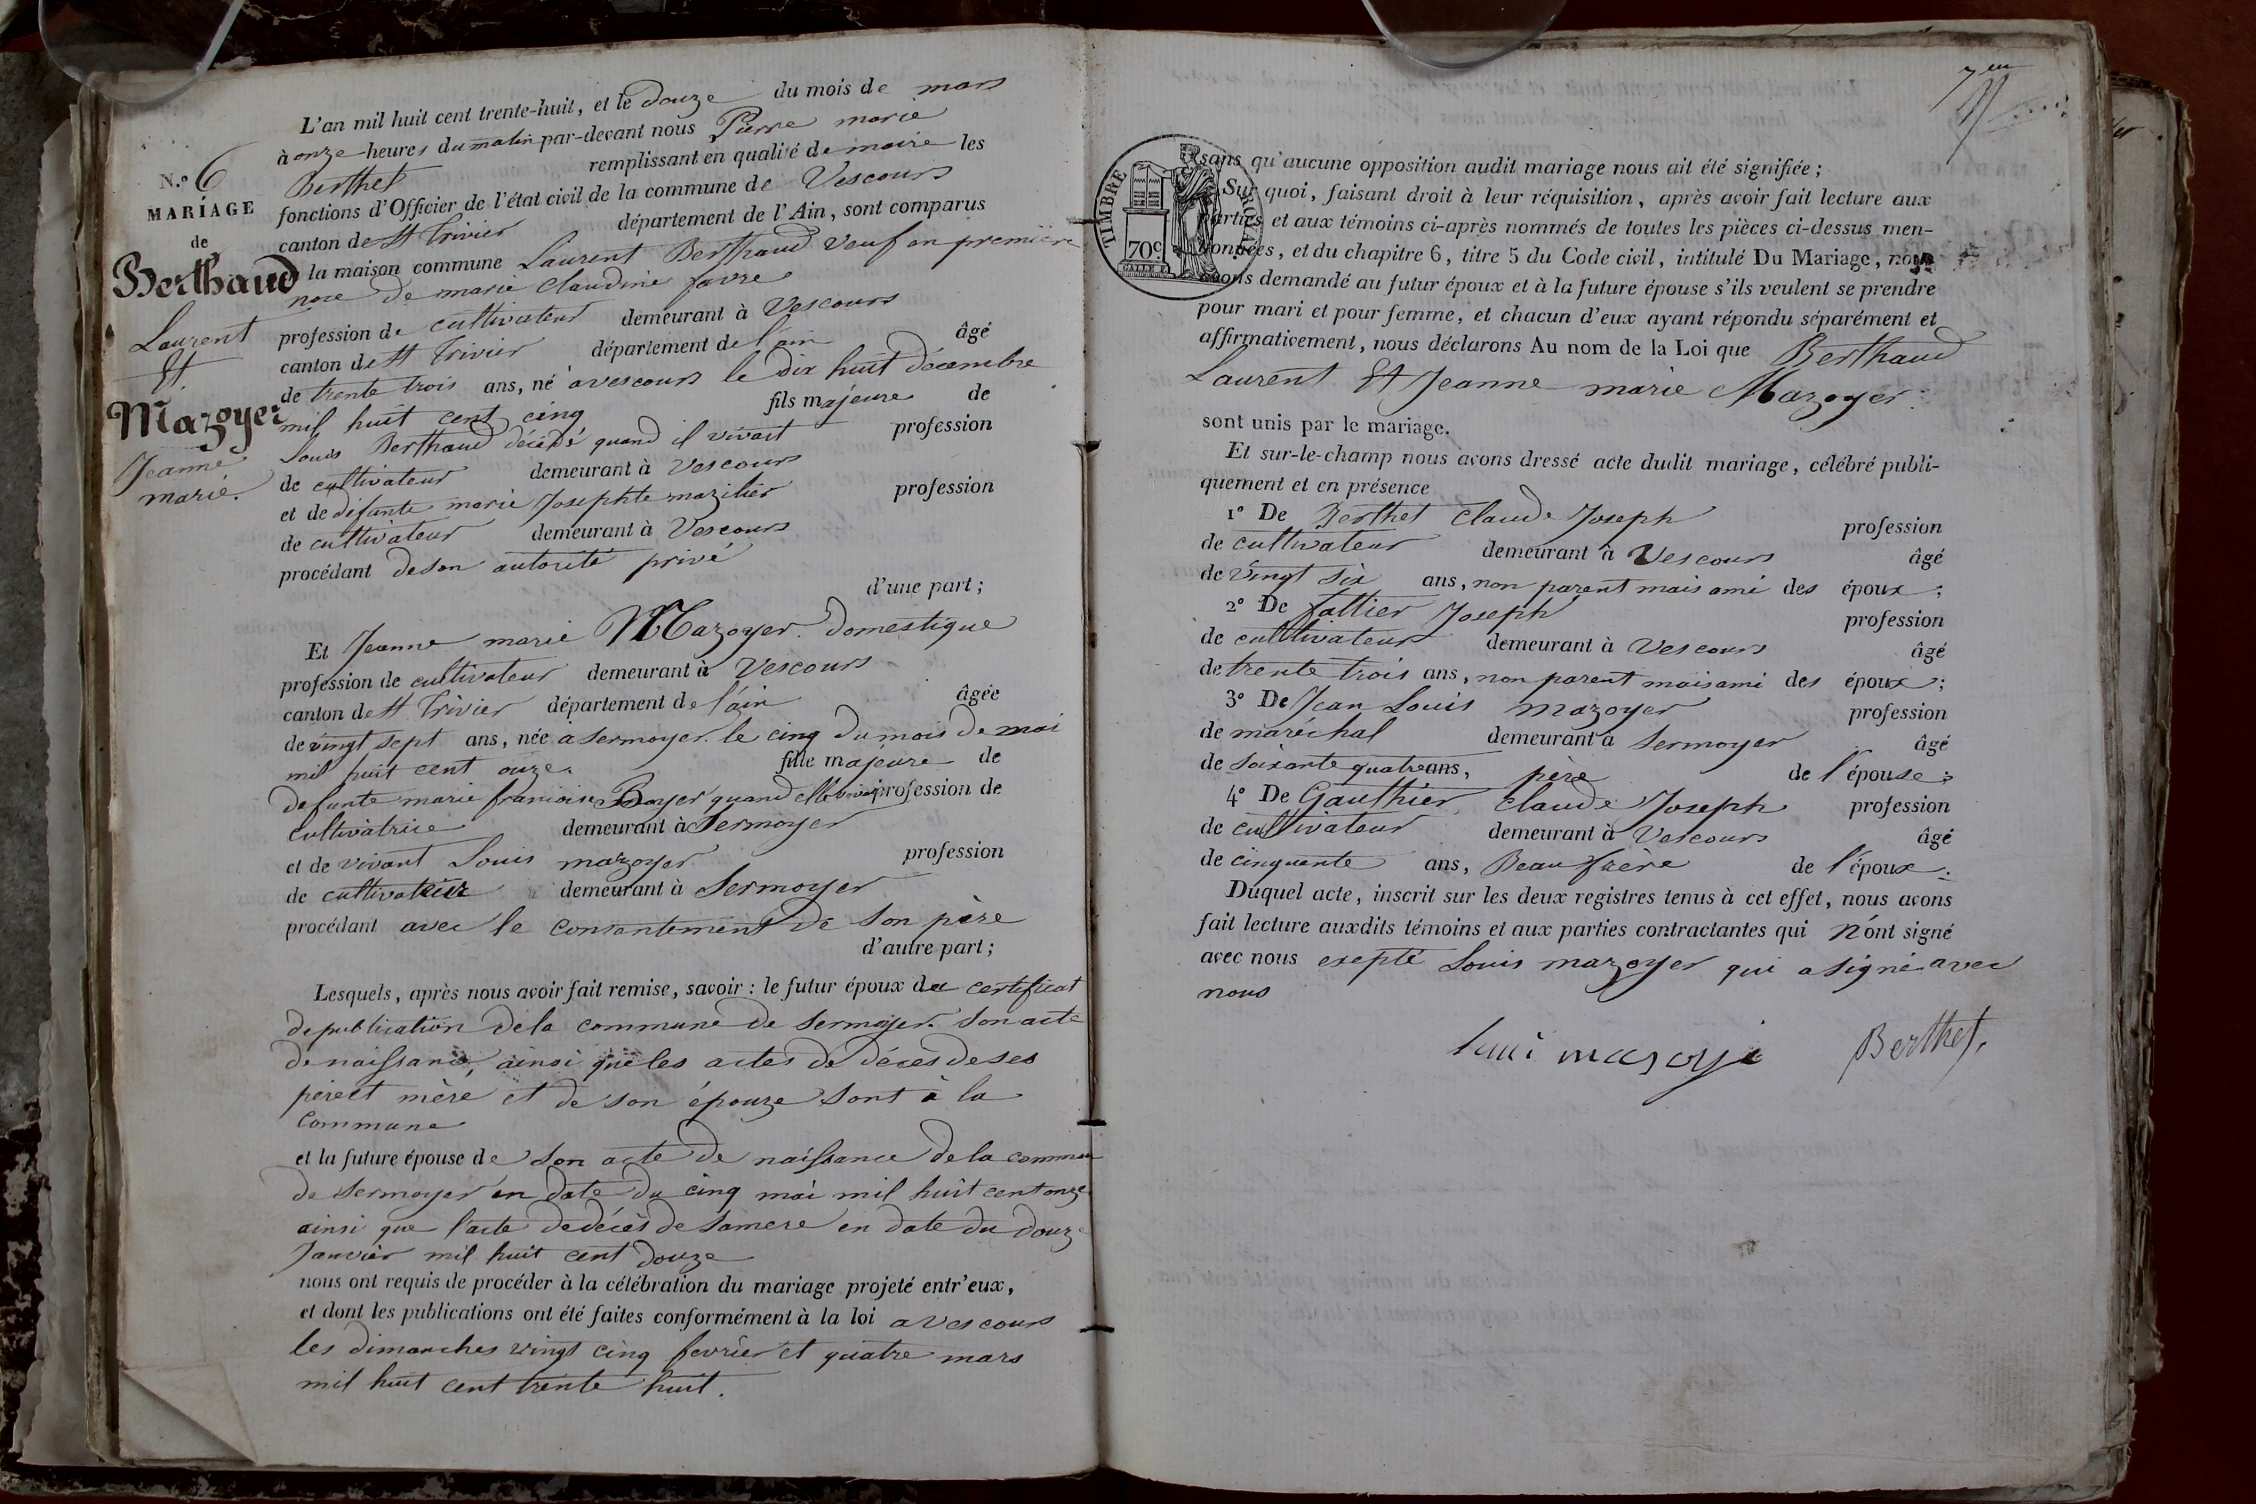 N.° 6
MARIAGE
de
Berthaud
Laurent
Et
Mazoyer
Jeanne
marie.
L'an mil huit cent trente-huit, et le douze du mois de mars
à onze heures du matin par-devant nous Pierre marie
Berthet remplissant en qualité de maire les
fonctions d'Officier de l'état civil de la commune de Vescours
canton de St Trivier département de l'Ain, sont comparus
la maison commune Laurent Berthaud veuf en première
noce de marie Claudine favre
profession de cultivateur demeurant à Vescours
canton de St Trivier département de l'ain âgé
de trente trois ans, né a vescours le dix huit décembre
mil huit cent cinq fils majeure de
Louis Berthaud décédé quand il vivait profession
de cultivateur demeurant à Vescours
et de défunte marie Josephte mazilier profession
de cultivateur demeurant à Vescours
procédant de son autorité privé
d'une part;
Et Jeanne marie Mazoyer domestique
profession de cultivateur demeurant à Vescours
canton de St Trivier département de l'ain âgée
de vingt sept ans, née a Sermoyer le cinq du mois de mai
mil huit cent onze. fille majeure de
defunte marie francoise Boyer quand elle vivait profession de
cultivatrice demeurant à Sermoyer
et de vivant Louis mazoyer profession
de cultivateur demeurant à Sermoyer
procédant avec le consentement de son père
d'autre part;
Lesquels, après nous avoir fait remise, savoir: le futur époux du certificat
de publication de la commune de sermoyer. son acte
de naissance, ainsi que les actes de décès de ses
père et mère et de son épouze sont à la
commune
et la future épouse de son acte de naissance de la commune
de sermoyer en date du cinq mai mil huit cent onze
ainsi que l'acte de décès de sa mere en date du douze
Janvier mil huit cent douze
nous ont requis de procéder à la célébration du mariage projeté entr'eux,
et dont les publications ont été faites conformément à la loi a vescours
les dimanches vingt cinq fevrier et quatre mars
mil huit cent trente huit.
7em
TIMBRE ROYAL
70c.
sans qu'aucune opposition audit mariage nous ait été signifiée;
Sur quoi, faisant droit à leur réquisition, après avoir fait lecture aux
parties et aux témoins ci-après nommés de toutes les pièces ci-dessus men-
tionnées, et du chapitre 6, titre 5 du Code civil, intitulé Du Mariage, nous
avons demandé au futur époux et à la future épouse s'ils veulent se prendre
pour mari et pour femme, et chacun d'eux ayant répondu séparément et
affirmativement, nous déclarons Au nom de la Loi que Berthaud
Laurent Et Jeanne marie Mazoyer.
sont unis par le mariage.
Et sur-le-champ nous avons dressé acte dudit mariage, célébré publi-
quement et en présence
1° De Berthet Claude Joseph profession
de cultivateur demeurant à Vescours âgé
de vingt six ans, non parent mais ami des époux;
2° De fattier Joseph profession
de cultivateur demeurant à Vescours âgé
de trente trois ans, non parent mais ami des époux;
3° De Jean Louis mazoyer profession
de maréchal demeurant à Sermoyer âgé
de soixante quatre ans, père de l'épouse;
4° De Gauthier Claude Joseph profession
de cultivateur demeurant à Vescours âgé
de cinquante ans, Beau frère de l'époux.
Duquel acte, inscrit sur les deux registres tenus à cet effet, nous avons
fait lecture auxdits témoins et aux parties contractantes qui n'ont signé
avec nous exepté Louis mazoyer qui a signé avec
nous
Berthet.